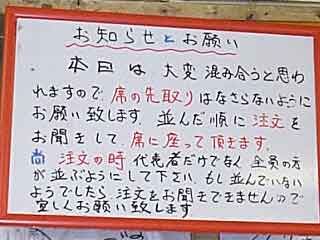 お知らせとお願い
本日は 大変 混み合うと思わ
れますので、席の先取りはなさらないように
お願い致します。並んだ順に注文を
お聞きして、席に座って頂きます。
尚 注文の時 代表者だけでなく 全員の方
が並ぶようにして下さい。もし並んでいない
ようでしたら 注文をお聞きできませんので
宜しくお願い致します